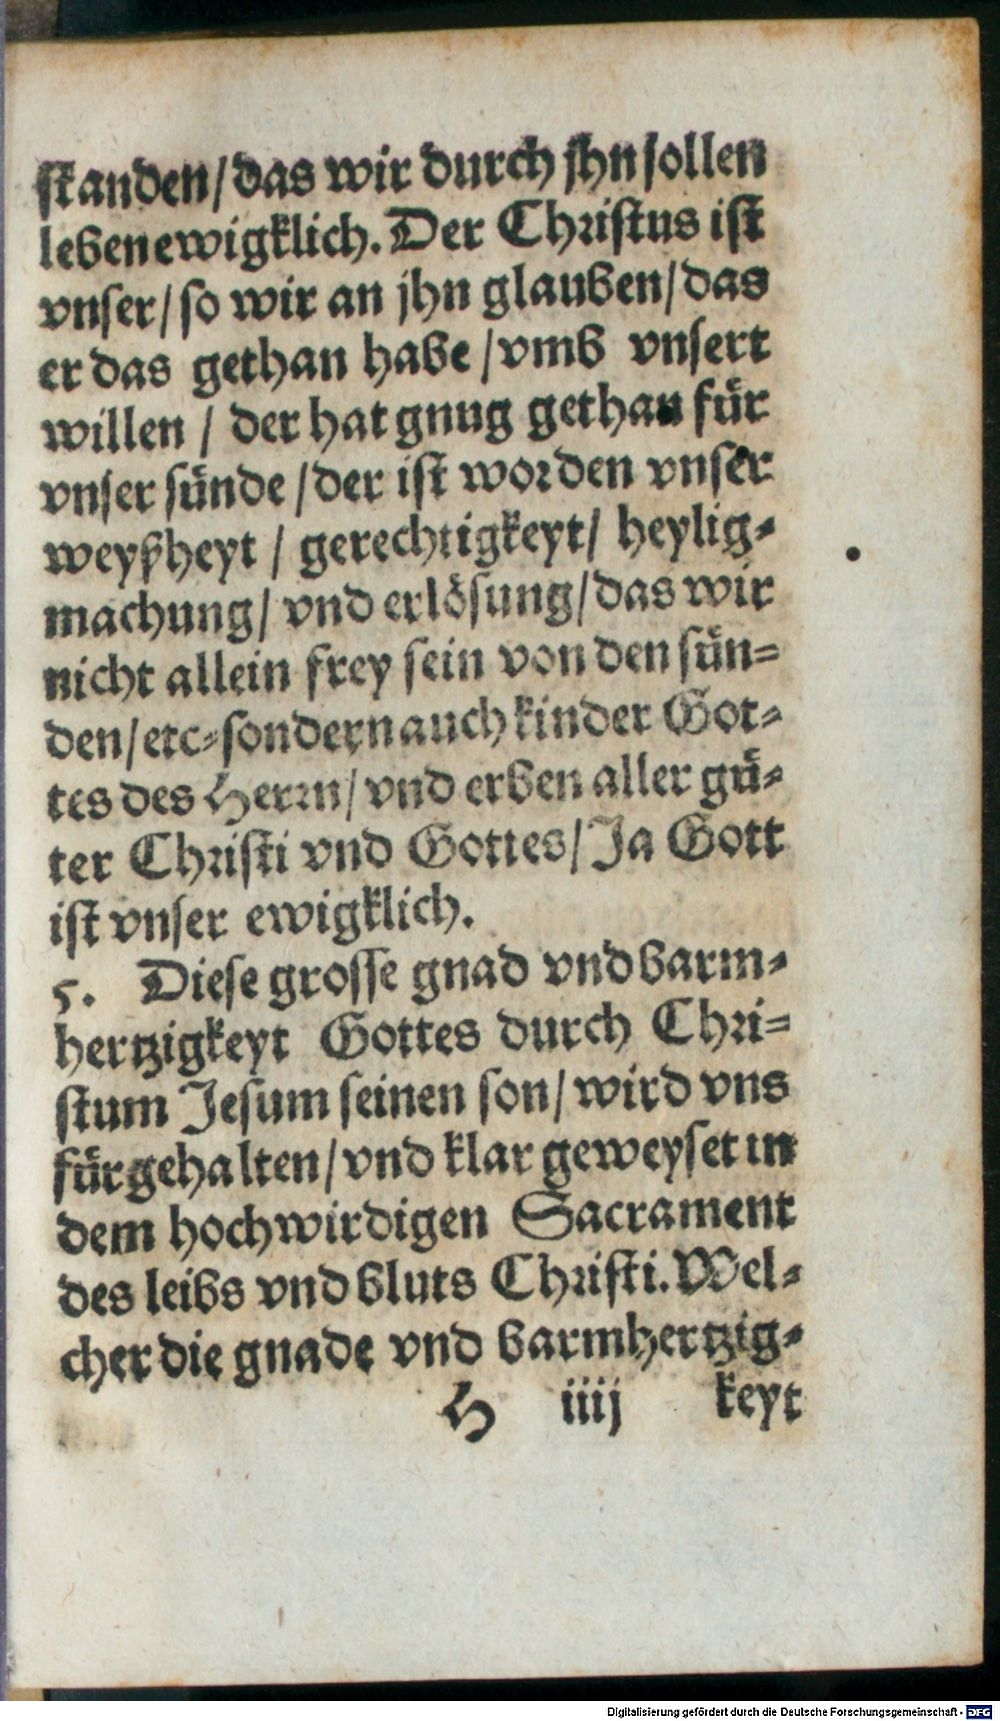 standen/das wir durch jhn sollen
leben ewigklich. Der Christus ist
vnser/so wir an jhn glauben/das
er das gethan habe/vmb vnsert
willen/der hat gnug gethan für
vnser sünde/der ist worden vnser
weyßheyt/gerechtigkeyt/heylig-
machung/vnd erlösung/das wir
nicht allein frey sein von den sün-
den/etc-sondern auch kinder Got-
tes des Herrn/vnd erben aller gü-
ter Christi vnd Gottes/Ja Gott
ist vnser ewigklich.
5. Diese grosse gnad vnd barm-
hertzigkeyt Gottes durch Chri-
stum Jesum seinen son/wird vns
fürgehalten/vnd klar geweyset in
dem hochwirdigen Sacrament
des leibs vnd bluts Christi. Wel-
cher die gnade vnd barmhertzig-
H iiij keyt
Digitalisierung gefördert durch die Deutsche Forschungsgemeinschaft - DFG